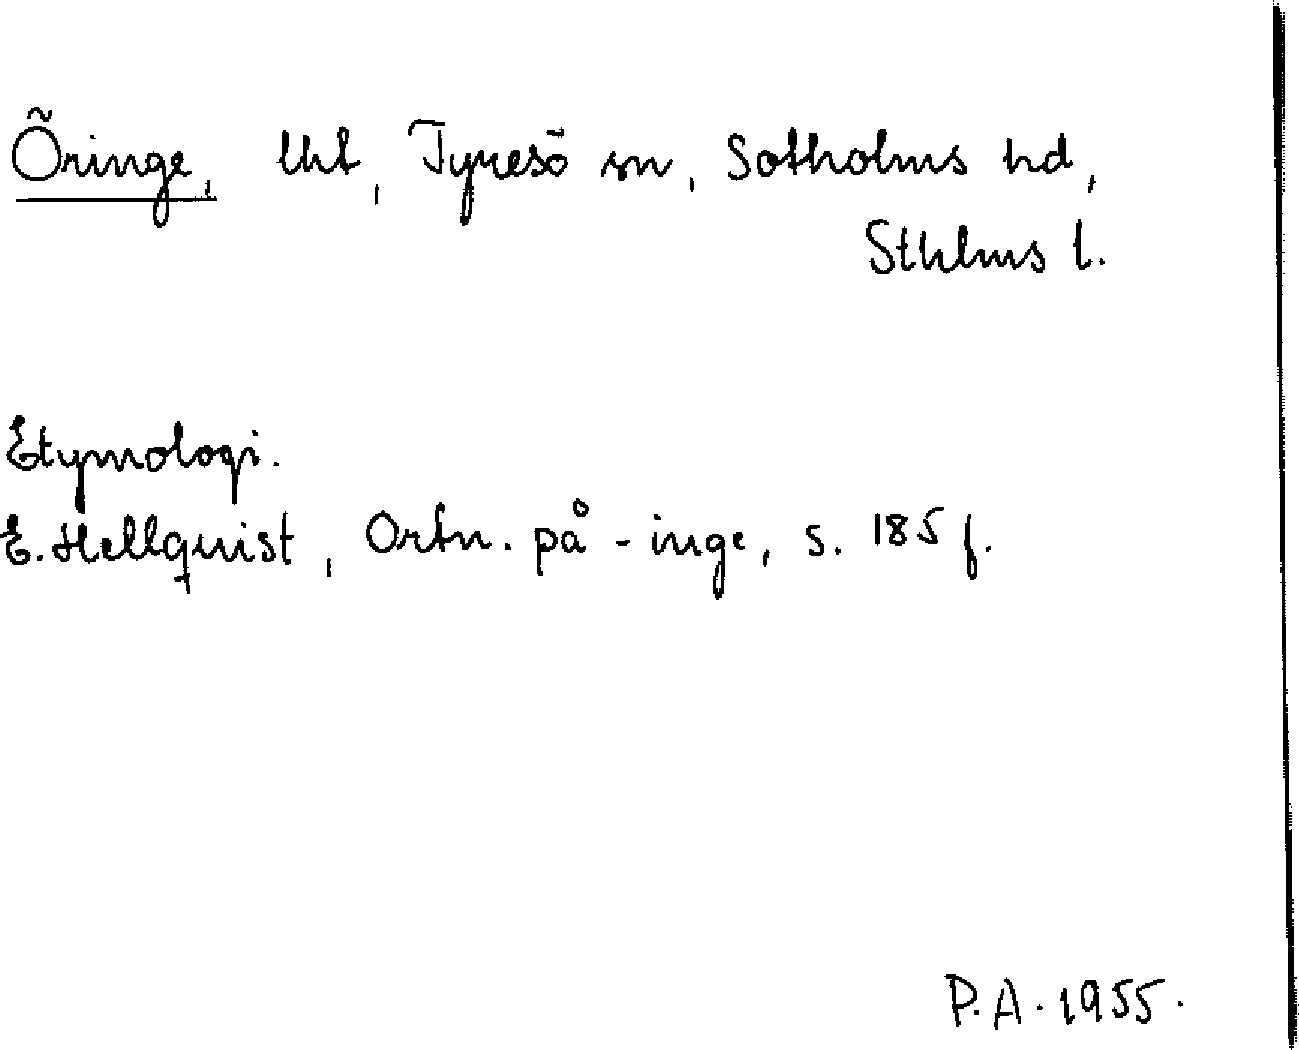 Öringe, lht, Tyresö sn, Sotholms hd,
Sthlms l.
Etymologi.
E. Hellquist, Ortn. på -inge, s. 185 f.
P.A. 1955.